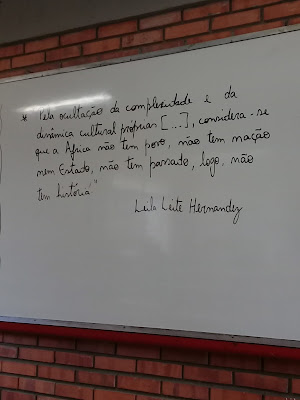 * "Pela ocultação da complexidade e da
dinâmica cultural próprias [...], considera-se
que a África não tem povo, não tem nação
nem Estado, não tem passado, logo, não
tem história"
Leila Leite Hernandez